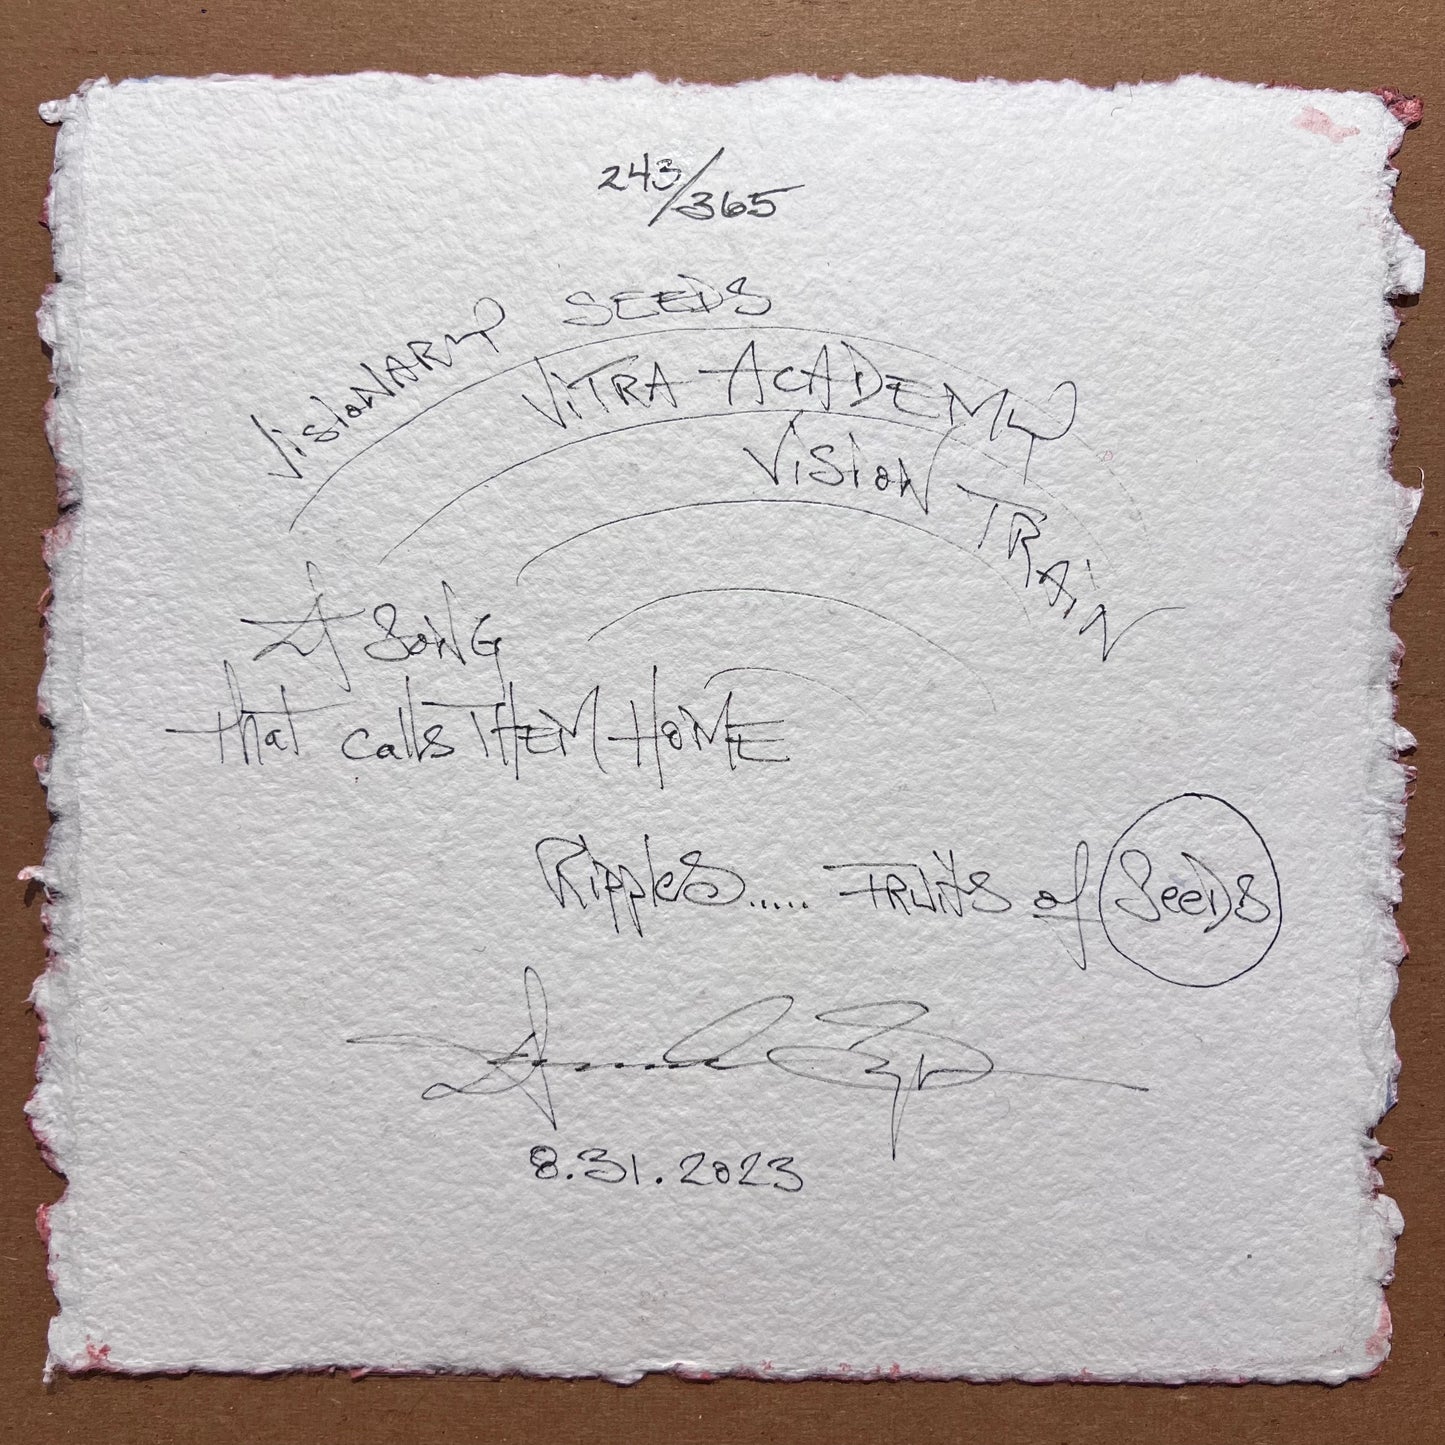 243/365
VisioNARY SEEDS
ViTRA ACADEMY
VisioN TRAiN
A SoNG
that calls THEM HoME
Ripples..... FRUiTS of SeeDS
8.31.2023